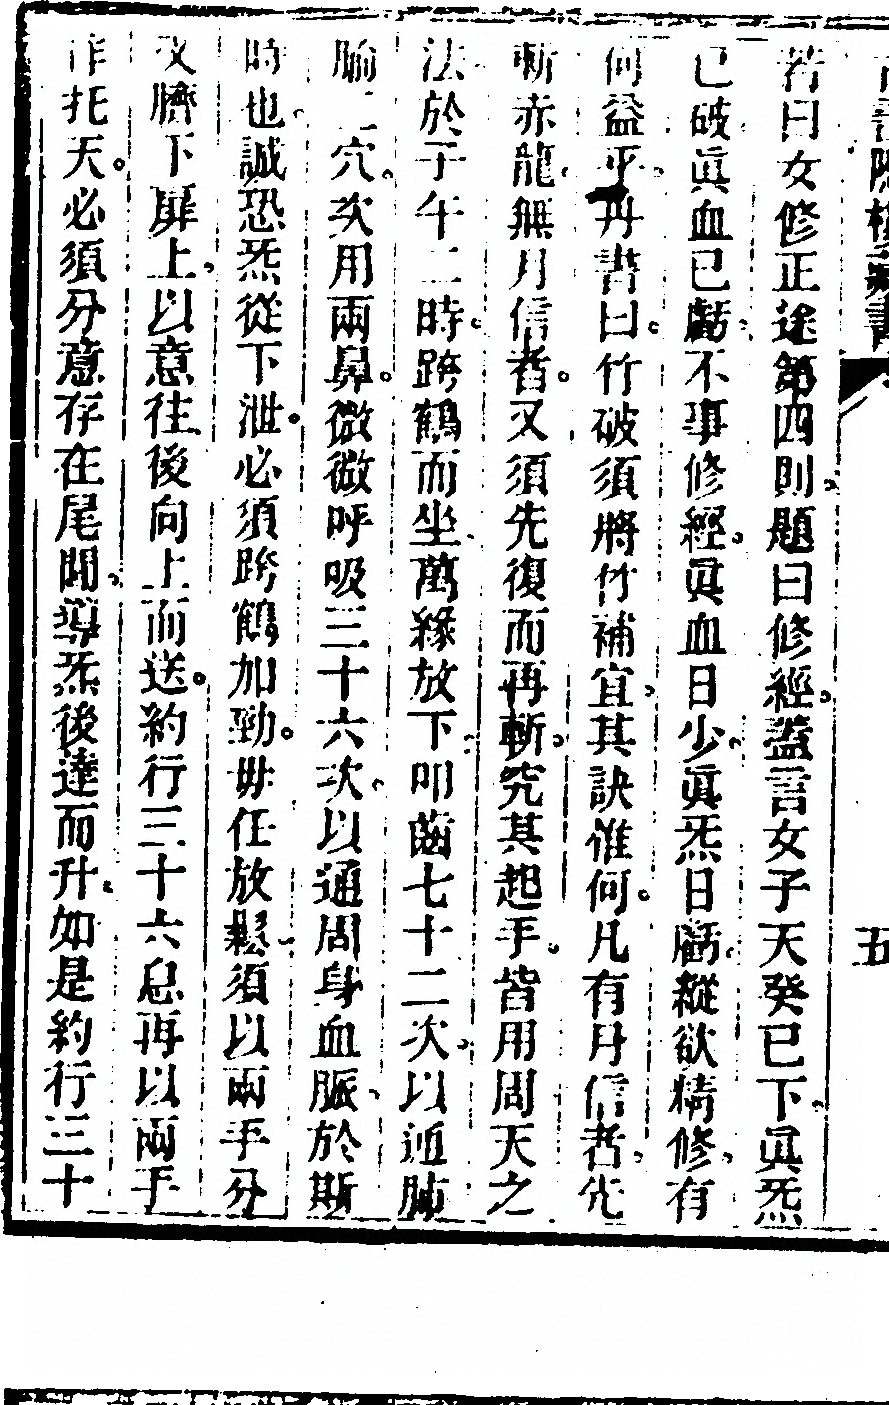 若曰女修正途第四則題曰修經蓋言女子天癸已下眞炁
已破眞血已虧不事修經眞血日少眞炁日虧縱欲精修有
何益乎丹書曰竹破須將竹補宜其訣維何凡有月信者先
斬赤龍無月信者又須先復而再斬究其起手皆用周天之
法於子午二時跨鶴而坐萬緣放下叩齒七十二次以通肺
腧二穴次用兩鼻微微呼吸三十六次以通周身血脈於斯
時也誠恐炁從下泄必須跨鶴加勁毋任放鬆須以兩手分
叉臍下扉上以意往後向上而送約行三十六息再以兩手
作托天必須分意存在尾閭導炁後達而升如是約行三十
五